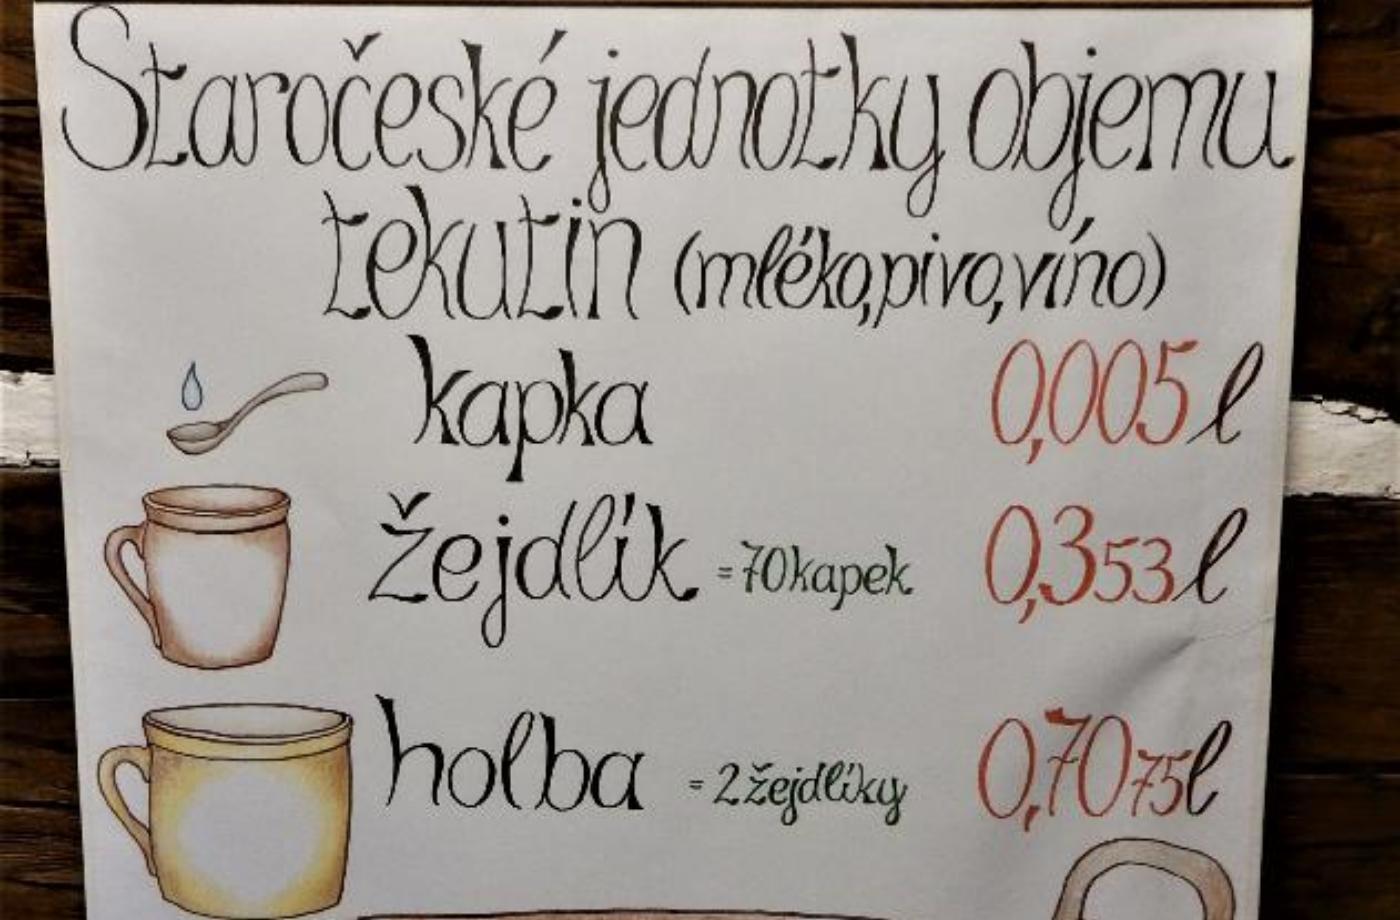 Staročeské jednotky objemu
tekutin (mléko,pivo,víno)
kapka 0,005 l
žejdlík = 70 kapek 0,353 l
holba = 2 žejdlíky 0,7075 l